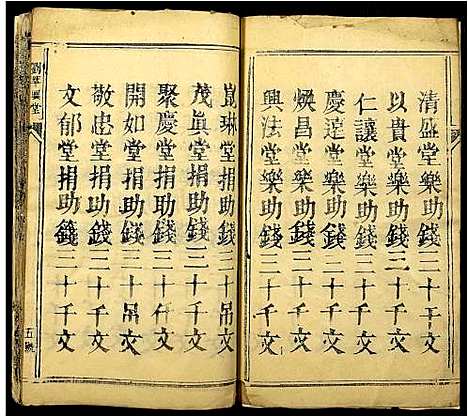 清盛堂樂助錢二十千文
以貴堂樂助錢二十千文
仁讓堂樂助錢二十千文
慶達堂樂助錢二十千文
煥昌堂樂助錢二十千文
興法堂樂助錢二十千文
崑琳堂捐助錢三十吊文
茂眞堂捐助錢三十千文
聚慶堂捐助錢三十仟文
開如堂捐助錢三十吊文
敬忠堂捐助錢三十千文
文郁堂捐助錢三十千文
堂
五